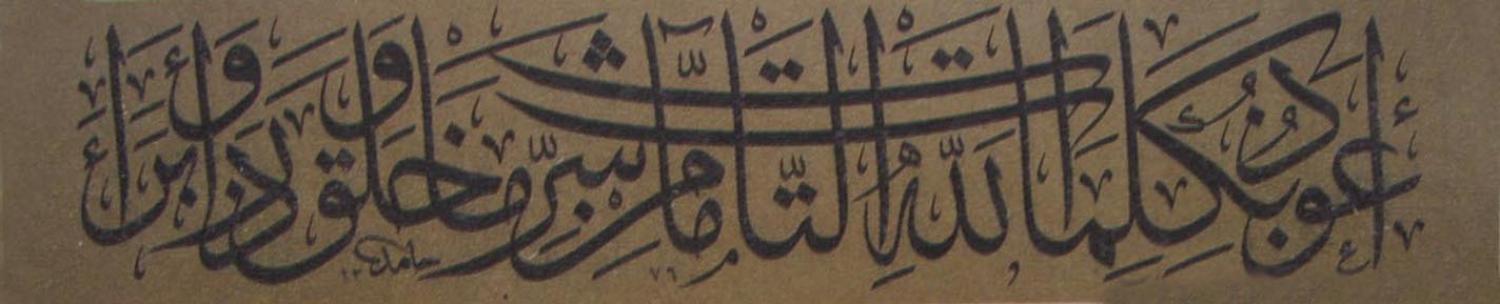 أعوذ بكلمات الله التامات من شر ما خلق وذرأ وبرأ
حامد